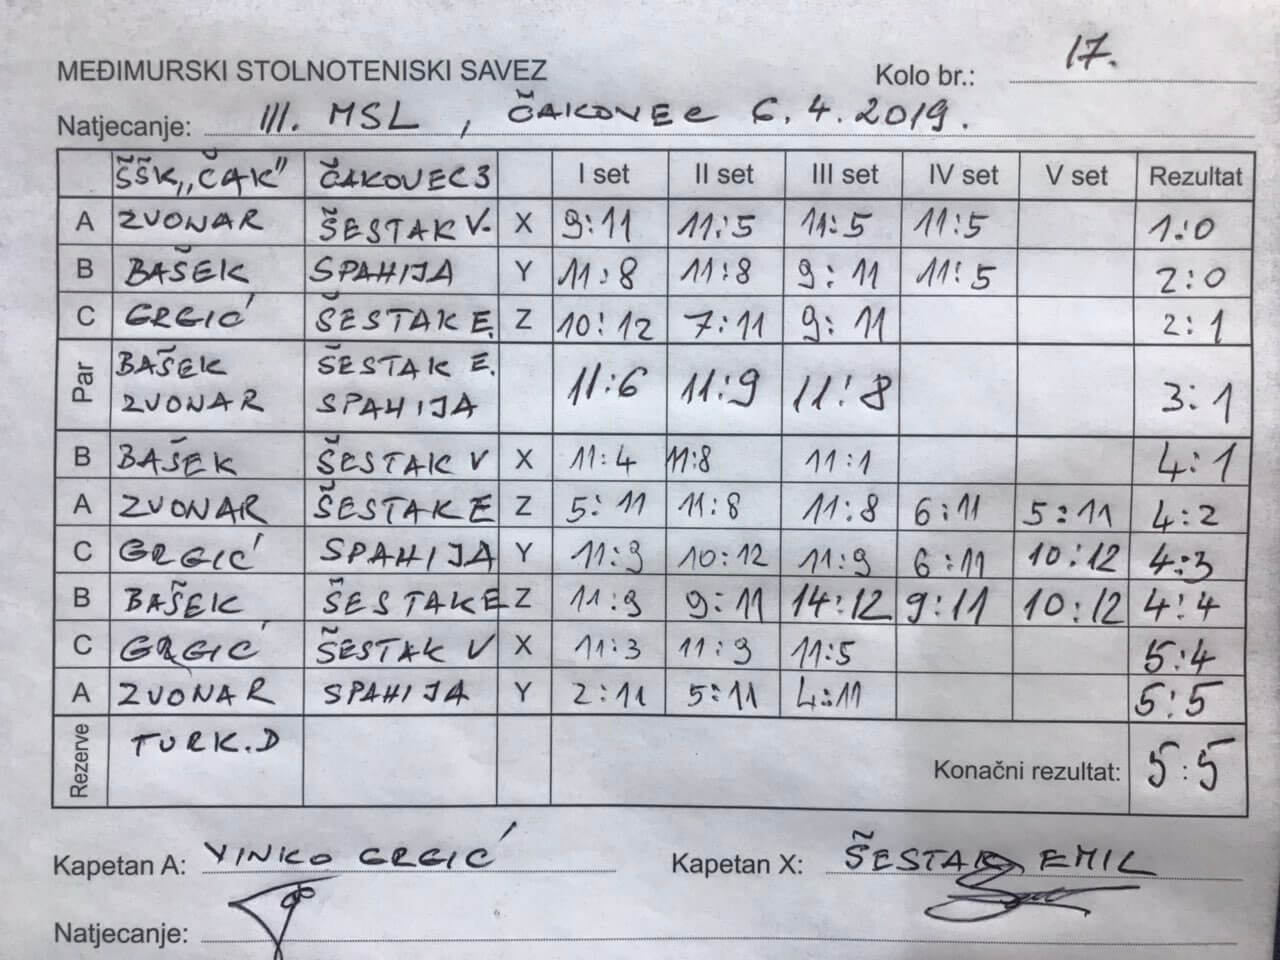 MEĐIMURSKI STOLNOTENISKI SAVEZ Kolo br.: 17.
Natjecanje: III. MSL, ČAKOVEC 6.4.2019.
ŠŠK„ČAK" ČAKOVEC 3 I set II set III set IV set V set Rezultat
A ZVONAR ŠESTAK V. X 9:11 11:5 11:5 11:5 1:0
B BAŠEK SPAHIJA Y 11:8 11:8 9:11 11:5 2:0
C GRGIĆ ŠESTAK E. Z 10:12 7:11 9:11 2:1
Par BAŠEK ŠESTAK E. 11:6 11:9 11:8 3:1
ZVONAR SPAHIJA
B BAŠEK ŠESTAK V X 11:4 11:8 11:1 4:1
A ZVONAR ŠESTAK E Z 5:11 11:8 11:8 6:11 5:11 4:2
C GRGIĆ SPAHIJA Y 11:9 10:12 11:9 6:11 10:12 4:3
B BAŠEK ŠESTAK E Z 11:9 9:11 14:12 9:11 10:12 4:4
C GRGIĆ ŠESTAK V X 11:3 11:9 11:5 5:4
A ZVONAR SPAHIJA Y 2:11 5:11 4:11 5:5
Rezerve TURK.D Konačni rezultat: 5:5
Kapetan A: VINKO GRGIĆ Kapetan X: ŠESTAK EMIL
Natjecanje: